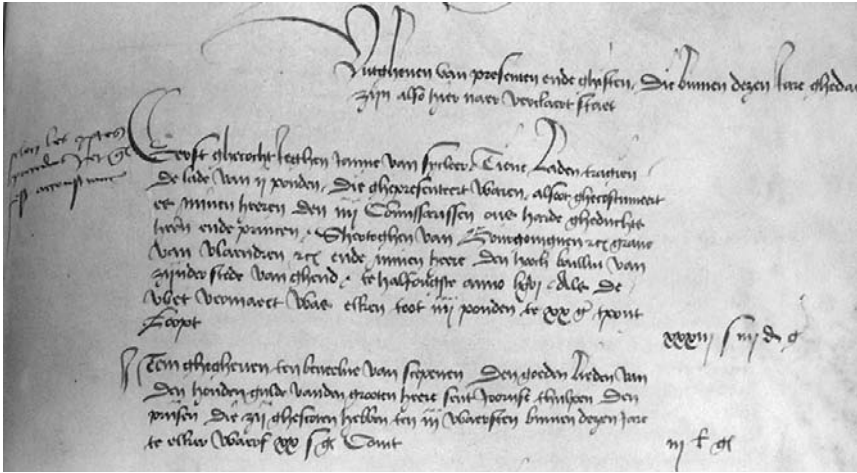 Uutgheven van presenten ende ghiften die binnen dezen Jare ghedaen
zijn also hier naer verclaert staet
Eerst ghecocht jeghen Janne van
De lade van ij ponden die ghepresenteert waren alsoot ghecostumeert
es minen heeren den iiij Commissarissen ons harde gheduchts
heeren ende princen Shertoghen van Bourgoingnen etc grave
van Vlaendren etc ende minen heere den hooch bailliu van
zijnder stede van ghend te halfougste anno lxvj Als de
Wet vermaect was elken toot iiij ponden te xx g tpont
Loopt
xxxiij s iiij d g
Item ghegheven ten beveelne van scepenen den goeden lieden van
den houden gulde vanden grooten heere sent Joorise thuhoen den
prijsen die zij ghescoten hebben ten iij waerften binnen dezen Jare
te elker waerf xx s g Comt
iij l g